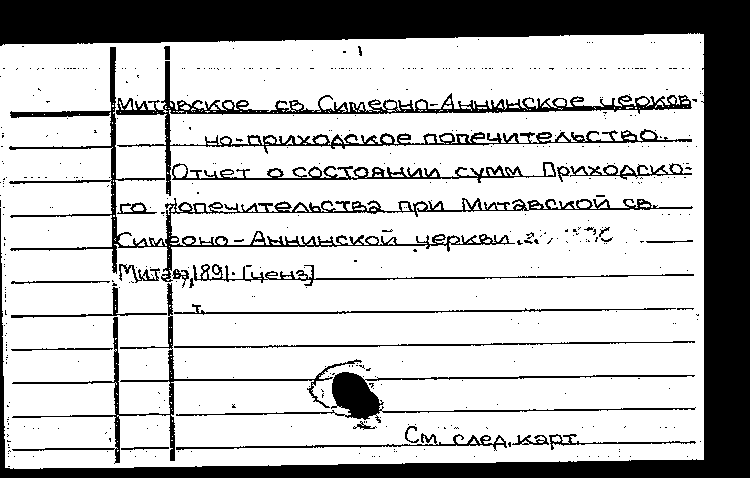 Митавское св. Симеоно-Аннинское церков-
но-приходское попечительство.
Отчет о состоянии сумм Приходско-
го попечительства при Митавской св.
Симеоно-Аннинской церкви.
Митава, 1891. [ценз]
т.
См. след. карт.